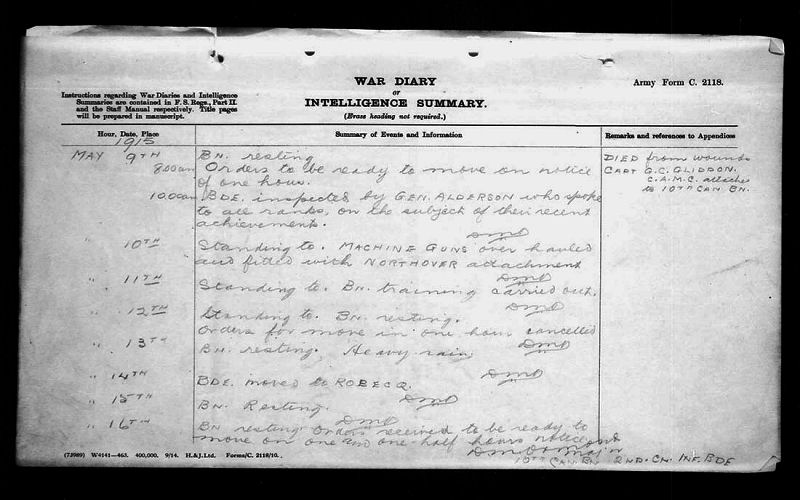 WAR DIARY
or
INTELLIGENCE SUMMARY.
(Erase heading not required.)
Army Form C. 2118.
Instructions regarding War Diaries and Intelligence
Summaries are contained in F. S. Regs., Part II.
and the Staff Manual respectively. Title pages
will be prepared in manuscript.
Hour, Date, Place
Summary of Events and Information
Remarks and references to Appendices
1915
MAY 9TH
BN. resting
8.00am Orders to be ready to move on notice
of one hour.
10.00am BDE. inspected by GEN. ALDERSON who spoke
to all ranks, on the subject of their recent
achievements.
DIED from wounds
CAPT G.C. GLIDDON.
C.A.M.C. attached
to 10TH CAN. BN.
" 10TH Standing to. MACHINE GUNS over hauled
and fitted with NORTHOVER attachment
" 11TH Standing to. BN. training carried out.
" 12TH Standing to. BN. resting.
Orders for move in one hour cancelled
" 13TH BN. resting. Heavy rain
" 14TH BDE. moved to ROBECQ.
" 15TH BN. Resting.
" 16TH BN resting. Orders received to be ready to
move on one and one-half hours notice
Major
10TH CAN. BN. 2ND. CN. INF. BDE
(73989) W4141—463. 400,000. 9/14. H.&J.Ltd. Forms/C. 2118/10.